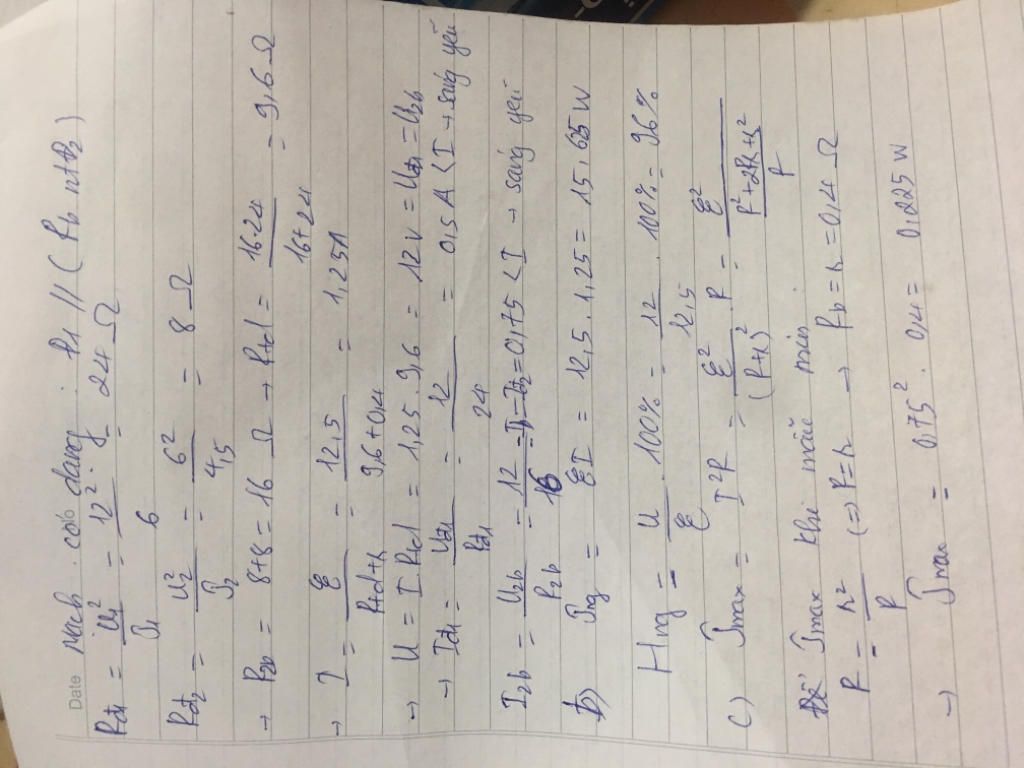 Date
Mạch có dạng: R1 // (Rb nt R2)
Rđ1 = U1²/P1 = 12²/6 = 24 Ω
Rđ2 = U2²/P2 = 6²/4,5 = 8 Ω
→ R2b = 8+8 = 16 Ω → Rtđ = 16.24/16+24 = 9,6 Ω
→ I = ℰ/Rtđ+r = 12,5/9,6+0,4 = 1,25A
→ U = I.Rtđ = 1,25.9,6 = 12V = Uđ1 = U2b
→ Iđ1 = Uđ1/Rđ1 = 12/24 = 0,5A < I → sáng yếu
I2b = U2b/R2b = 12/16 = I2 = 0,75 < I → sáng yếu
b) Png = ℰI = 12,5.1,25 = 15,625W
Hng = U/ℰ.100% = 12/12,5.100% = 96%
c) Pmax = I²R = ℰ²/(R+r)².R = ℰ²/R²+2Rr+r²/R
Để Pmax khi mẫu min.
R = r²/R (=) R=r → Rb = r = 0,4 Ω
→ Pmax = 0,75².0,4 = 0,225W